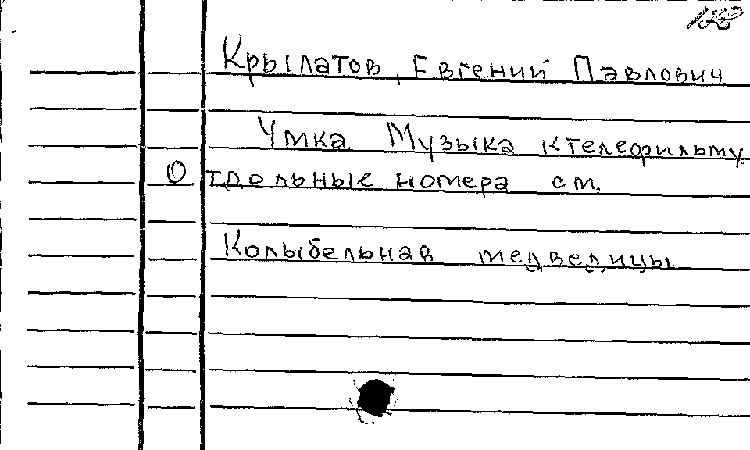 Крылатов, Евгений Павлович
Умка Музыка к телефильму
Отдельные номера см.
Колыбельная медведицы